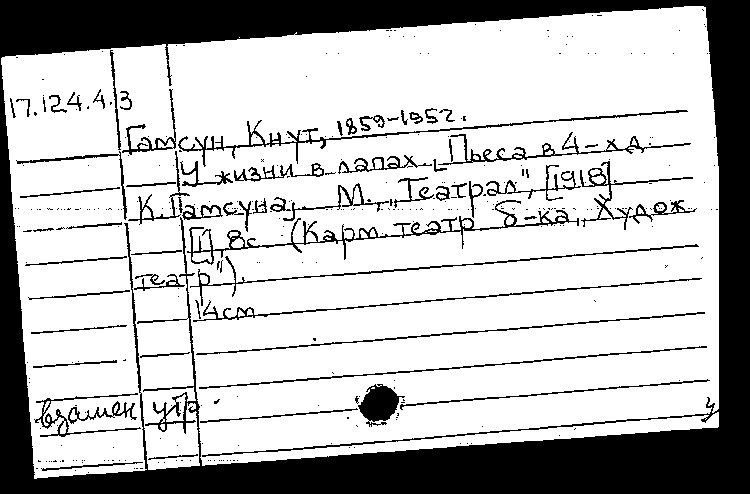 17.124.4.3
Гамсун, Кнут, 1859-1952.
У жизни в лапах. [Пьеса в 4-х д.
К. Гамсуна]. М., „Театрал", [1918].
[1], 8 с. (Карм. театр б-ка „Худож
театр").
14 см.
взамен утр.
У